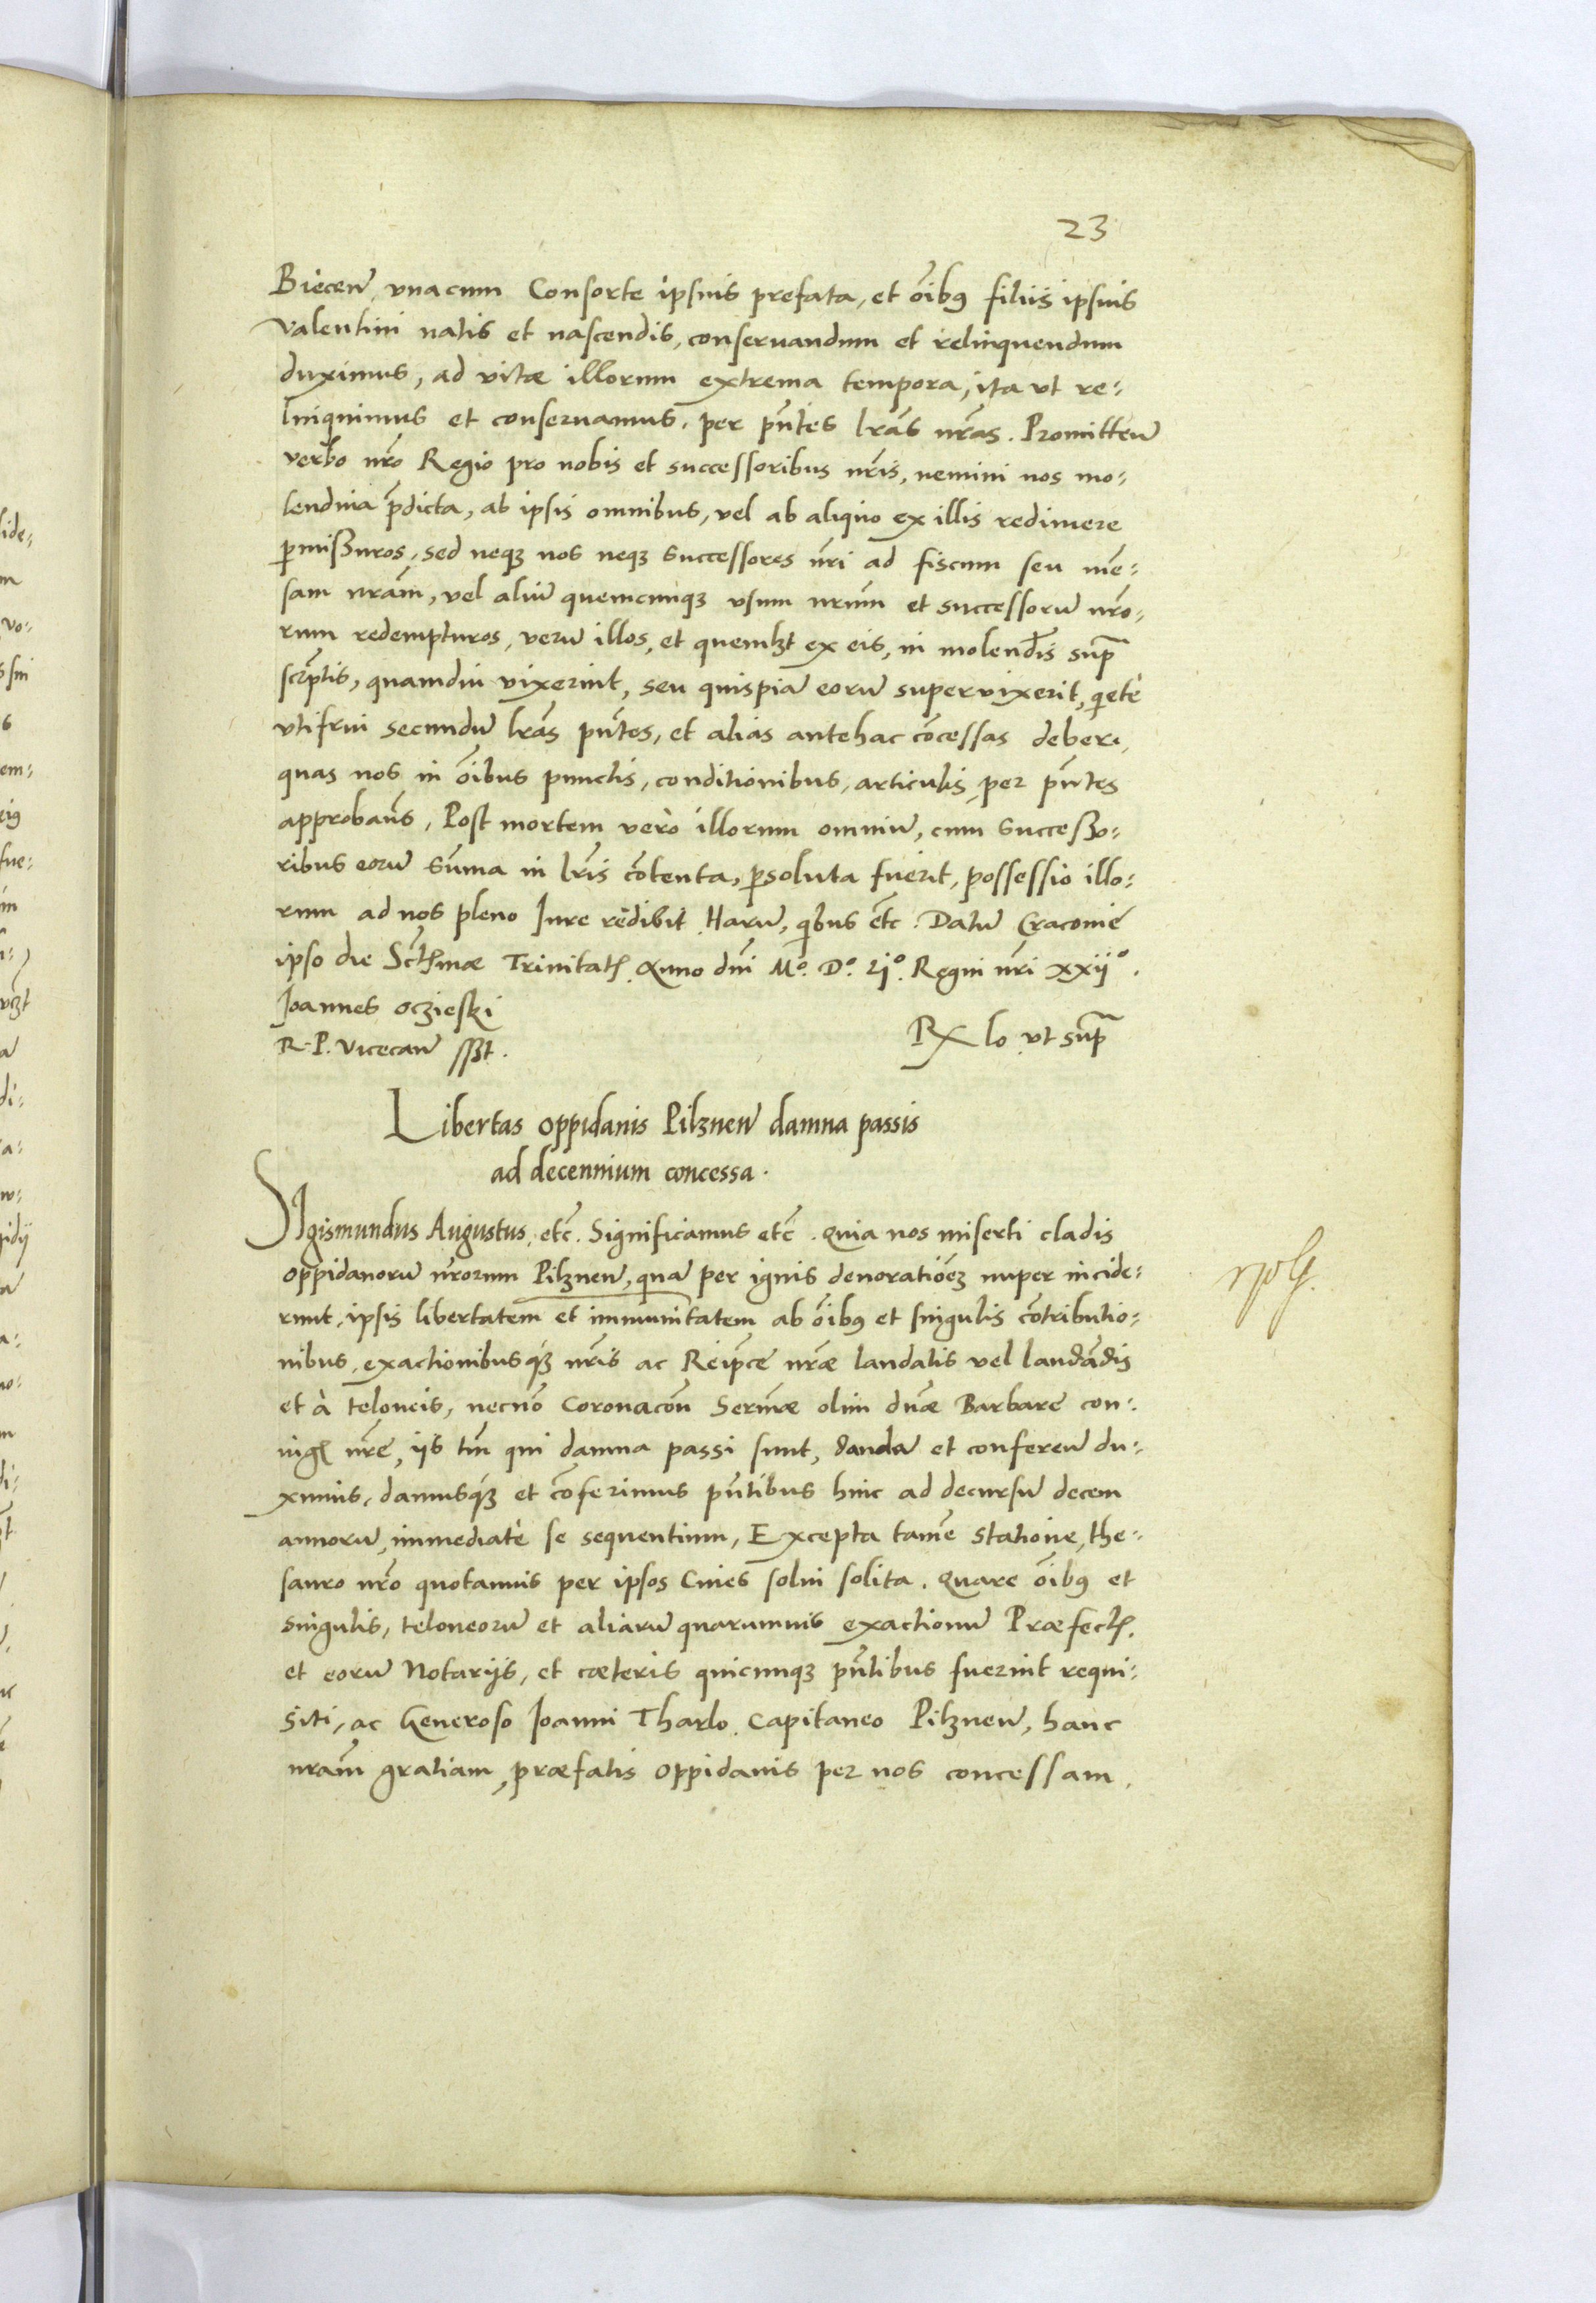 23
Biecen̄, vnacum Consorte ipsius prefata, et oībꝯ filiis ipsius
Valentini natis et nascendis, conseruandum et relinquendum
duximus, ad vitæ illorum extrema tempora, ita vt re-
linquimus et conseruamus, per pn̄tes lrās nrās. Promitten̄
verbo nrō Regio pro nobis et successoribus nrīs, nemini nos mo-
lendina p̄dicta, ab ipsis omnibus, vel ab aliquo ex illis redimere
ꝑmißuros, sed neqꝫ nos neqꝫ successores nrī ad fiscum seu mē-
sam nrām, vel aliū quemcunqꝫ vsum nrūm et successorū nrō-
rum redempturos, verū illos, et quemlꝫt ex eis, in molendīs sup̄
scrīptis, quamdiu vixerint, seu quispiā eorū supervixerit, qietè
vtifrui secundū lrās pn̄tes, et alias antehac cōcessas debere,
quas nos in oībus punctis, conditionibus, articulis, per pn̄tes
approbam̄s, Post mortem verò illorum omniū, cum successo-
ribus eorū sūma in lrīs cōtenta, ꝑsoluta fuerit, possessio illo-
rum ad nos pleno Iure redibit. Harū, qibus etc̄. Datū Cracouie
ipso die Sctīssmæ Trinitatꝭ. Anno dnī Mº. Dº. Ljº. Regni nrī xxijº.
Joannes oczieski
R. P. Vicecan̄ sꝫt.
Rx lo vt sup̄
Libertas oppidanis Pilznen̄ damna passis
ad decennium concessa.
SIgismundus Augustus, etc̄. Significamus etc̄. Quia nos miserti cladis
oppidanorū nrōrum Pilznen̄, quā per ignis deuoratiōēꝫ nuper incide-
runt, ipsis libertatem et immunitatem ab oībꝯ et singulis cōtributio-
nibus, exactionibusqꝫ nrīs ac Reipc̄e nrǣ laudatis vel laudādis
et à teloneis, necnō Coronacōn̄ Serm̄æ olim dnǣ Barbare con-
iugꝭ nrē, ijs tm̄ qui damna passi sunt, dandā et conferen̄ du-
ximus, damusqꝫ et cōferimus pn̄tibus hinc ad decursū decem
annorū, immediatè se sequentium, Excepta tamē statione, the-
sauro nrō quotannis per ipsos Ciues solui solita. Quare oībꝯ et
singulis, teloneorū et aliarū quarumuis exactionū Præfectꝭ.
et eorū Notarijs, et cæteris quicunqꝫ pn̄tibus fuerint requi-
siti, ac Generoso Joanni Tharlo Capitaneo Pilznen̄, hanc
nrām gratiam, præfatis oppidanis per nos concessam,